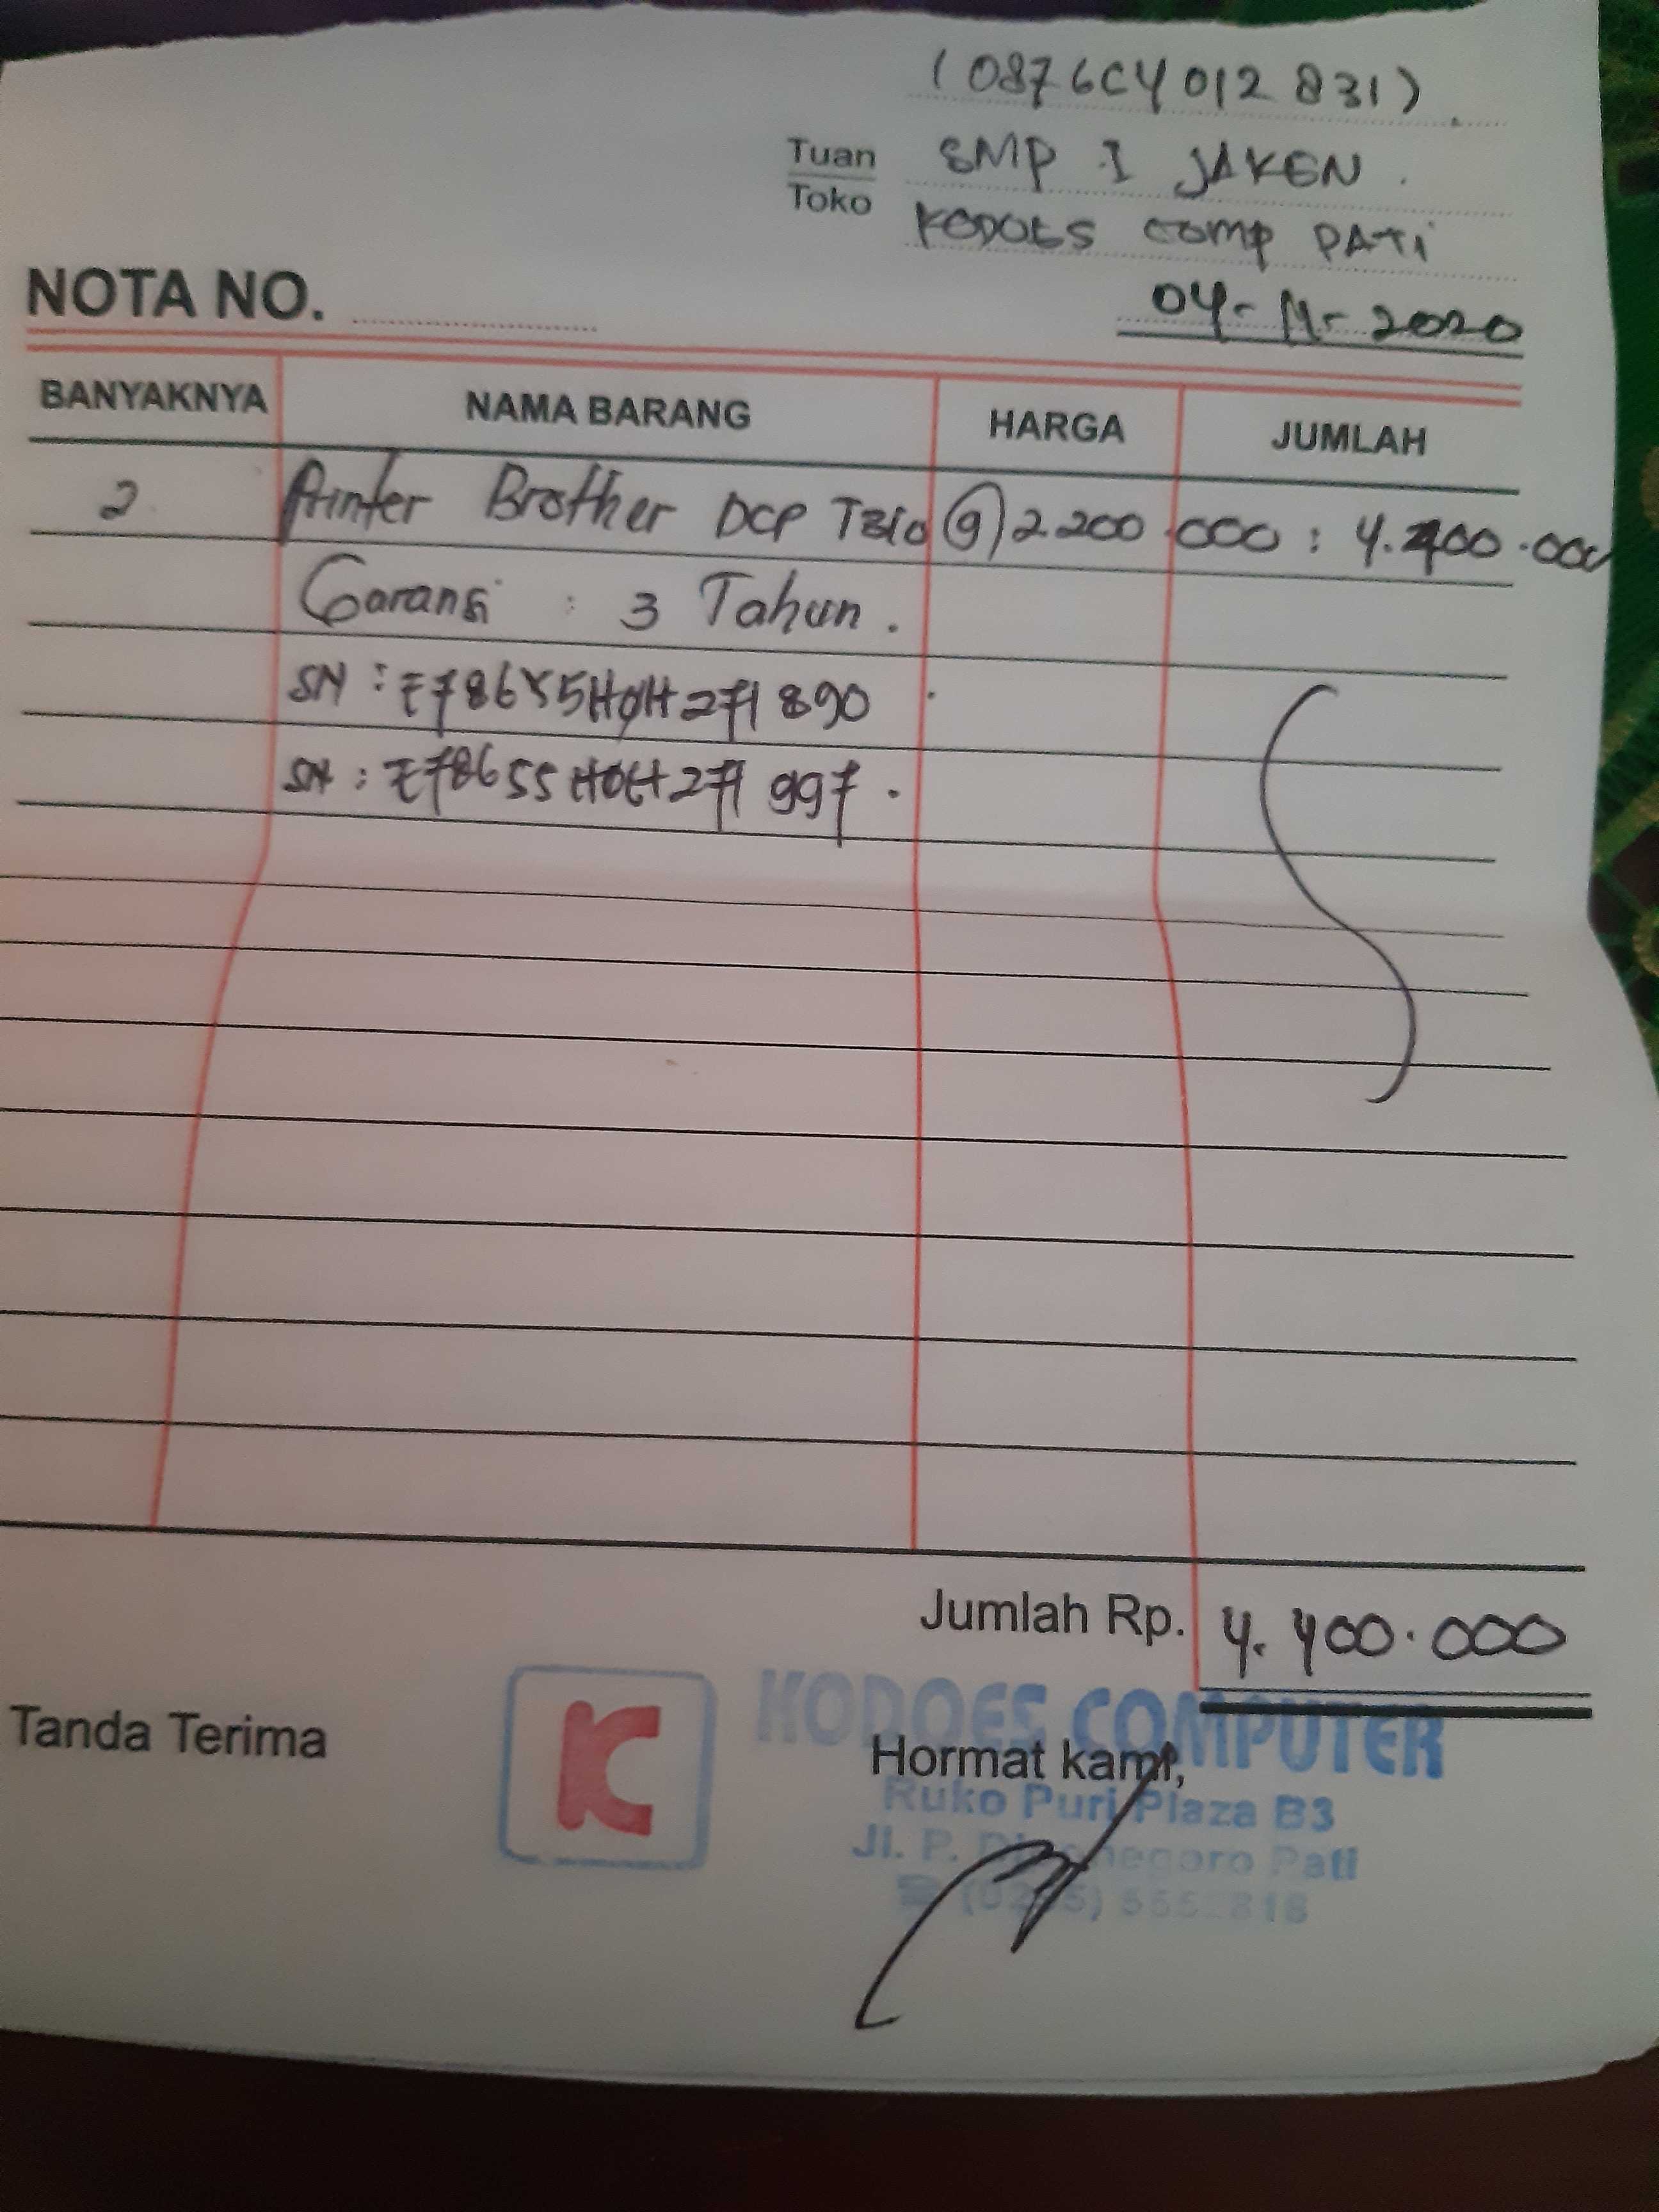 (0876CY012831)
Tuan SMP I JAKEN.
Toko KODOES COMP PATI
NOTA NO. 04-11-2020
BANYAKNYA NAMA BARANG HARGA JUMLAH
2 Printer Brother DCP T310 @ 2.200.000 : 4.400.000
Garansi : 3 Tahun.
SN :
SN :
Jumlah Rp. 4.400.000
Tanda Terima Hormat kami,
K KODOES COMPUTER
Ruko Puri Plaza B3
Jl. P. Pati